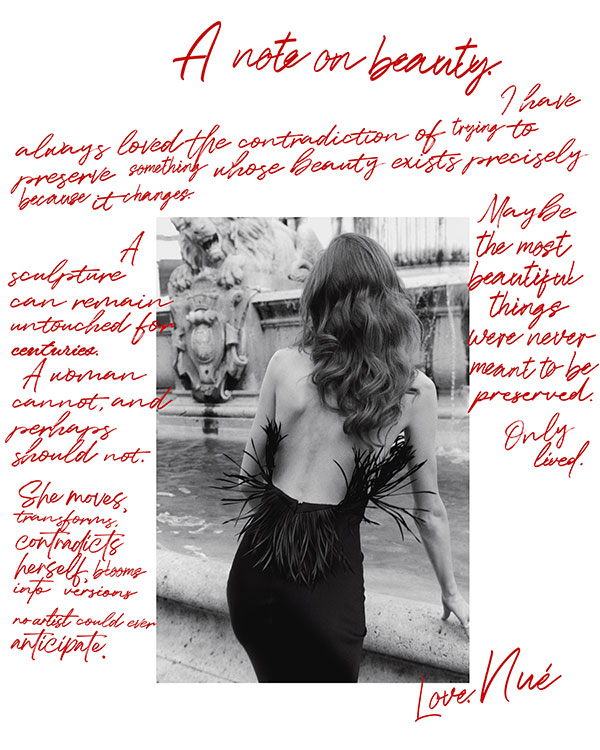 A note on beauty.
I have
always loved the contradiction of trying to
preserve something whose beauty exists precisely
because it changes.
A
sculpture
can remain
untouched for
centuries.
A woman
cannot, and
perhaps
should not.
She moves,
transforms,
contradicts
herself, blooms
into versions
no artist could ever
anticipate.
Maybe
the most
beautiful
things
were never
meant to be
preserved.
Only
lived.
Love. Nué